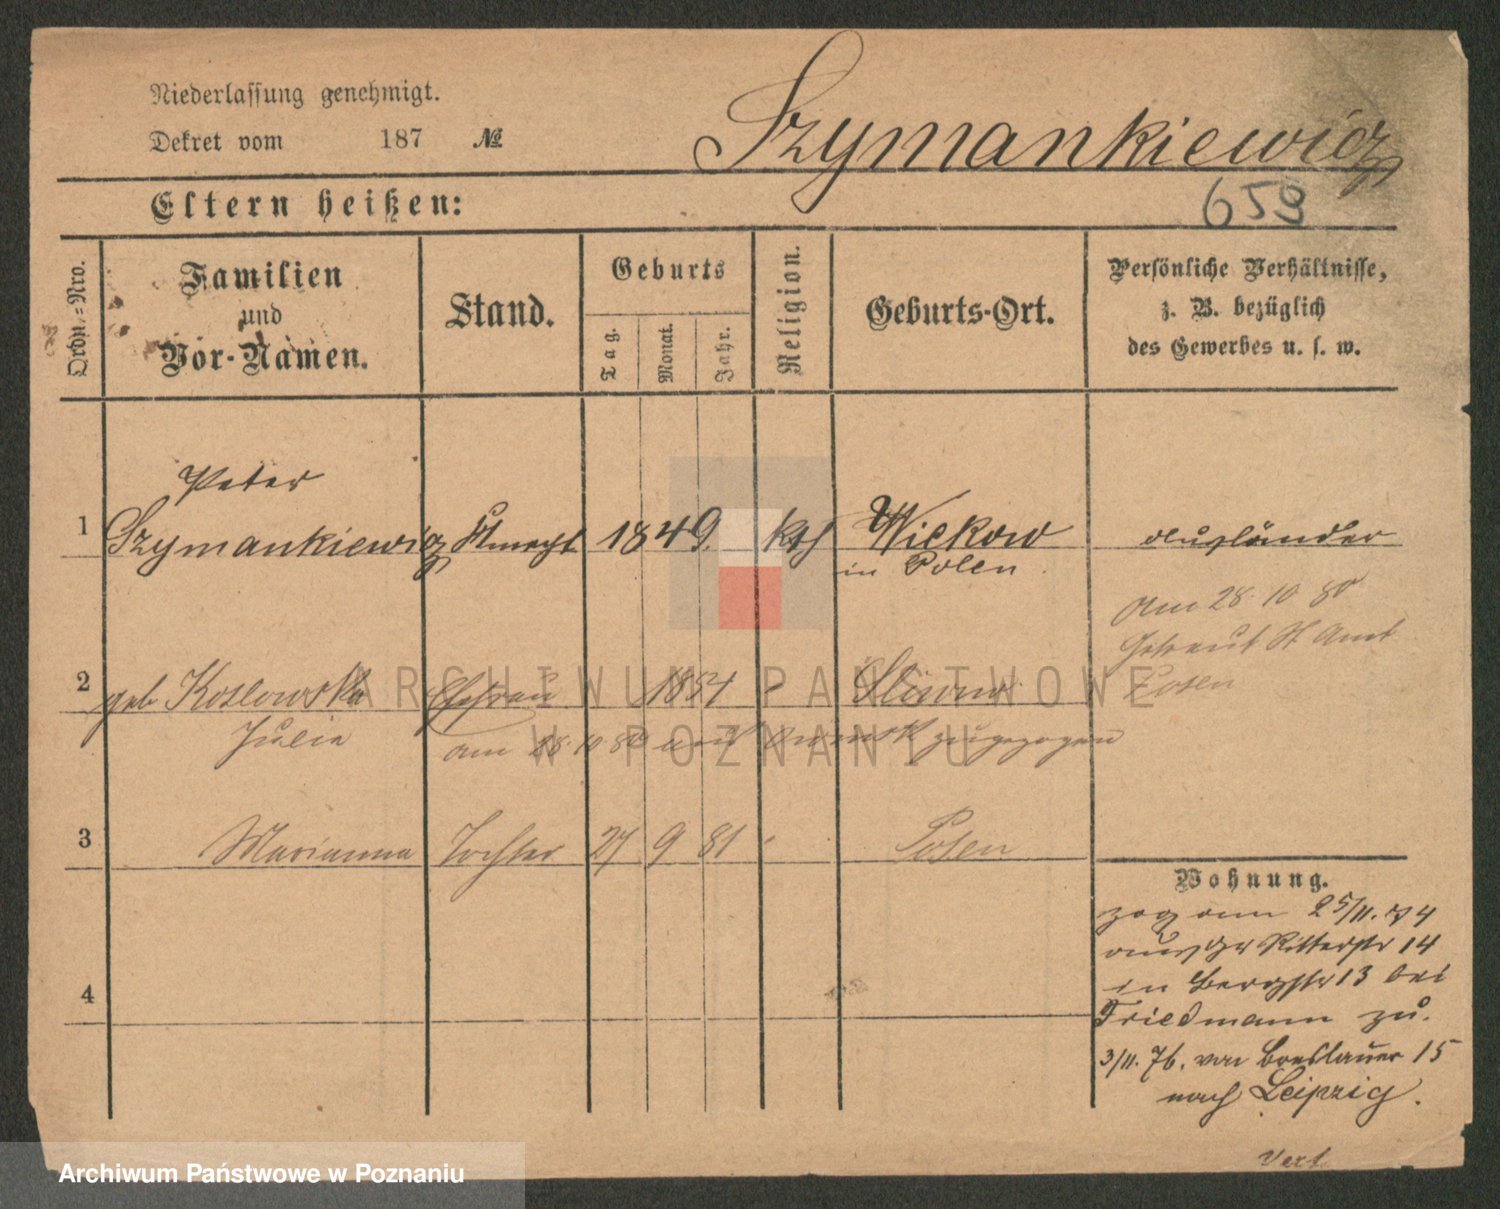 Niederlassung genehmigt.
Dekret vom 187 №
Szymankiewicz
659
Eltern heißen:
Ordn.-Nro.
Familien
und
Vor-Namen.
Stand.
Geburts
Tag.
Monat.
Jahr.
Religion.
Geburts-Ort.
Persönliche Verhältnisse,
z. B. bezüglich
des Gewerbes u. s. w.
Peter
1 Szymankiewicz Knecht 1849. kth Wilkowo Ausländer
in Polen
Am 28. 10 80
Getraut St Amt
Posen
2 geb Koslowska Ehefrau 1854
Julie
am 28. 10 80 zugezogen
3 Marianna Tochter 27 9 81 Posen
4
Wohnung.
zog am 25/11. 74
aus Gr Ritterstr 14
in Bergstr 13 bei
Friedmann zu.
3/11. 76. von Breslauer 15
nach Leipzig.
Vert
ARCHIWUM PAŃSTWOWE
W POZNANIU
Archiwum Państwowe w Poznaniu